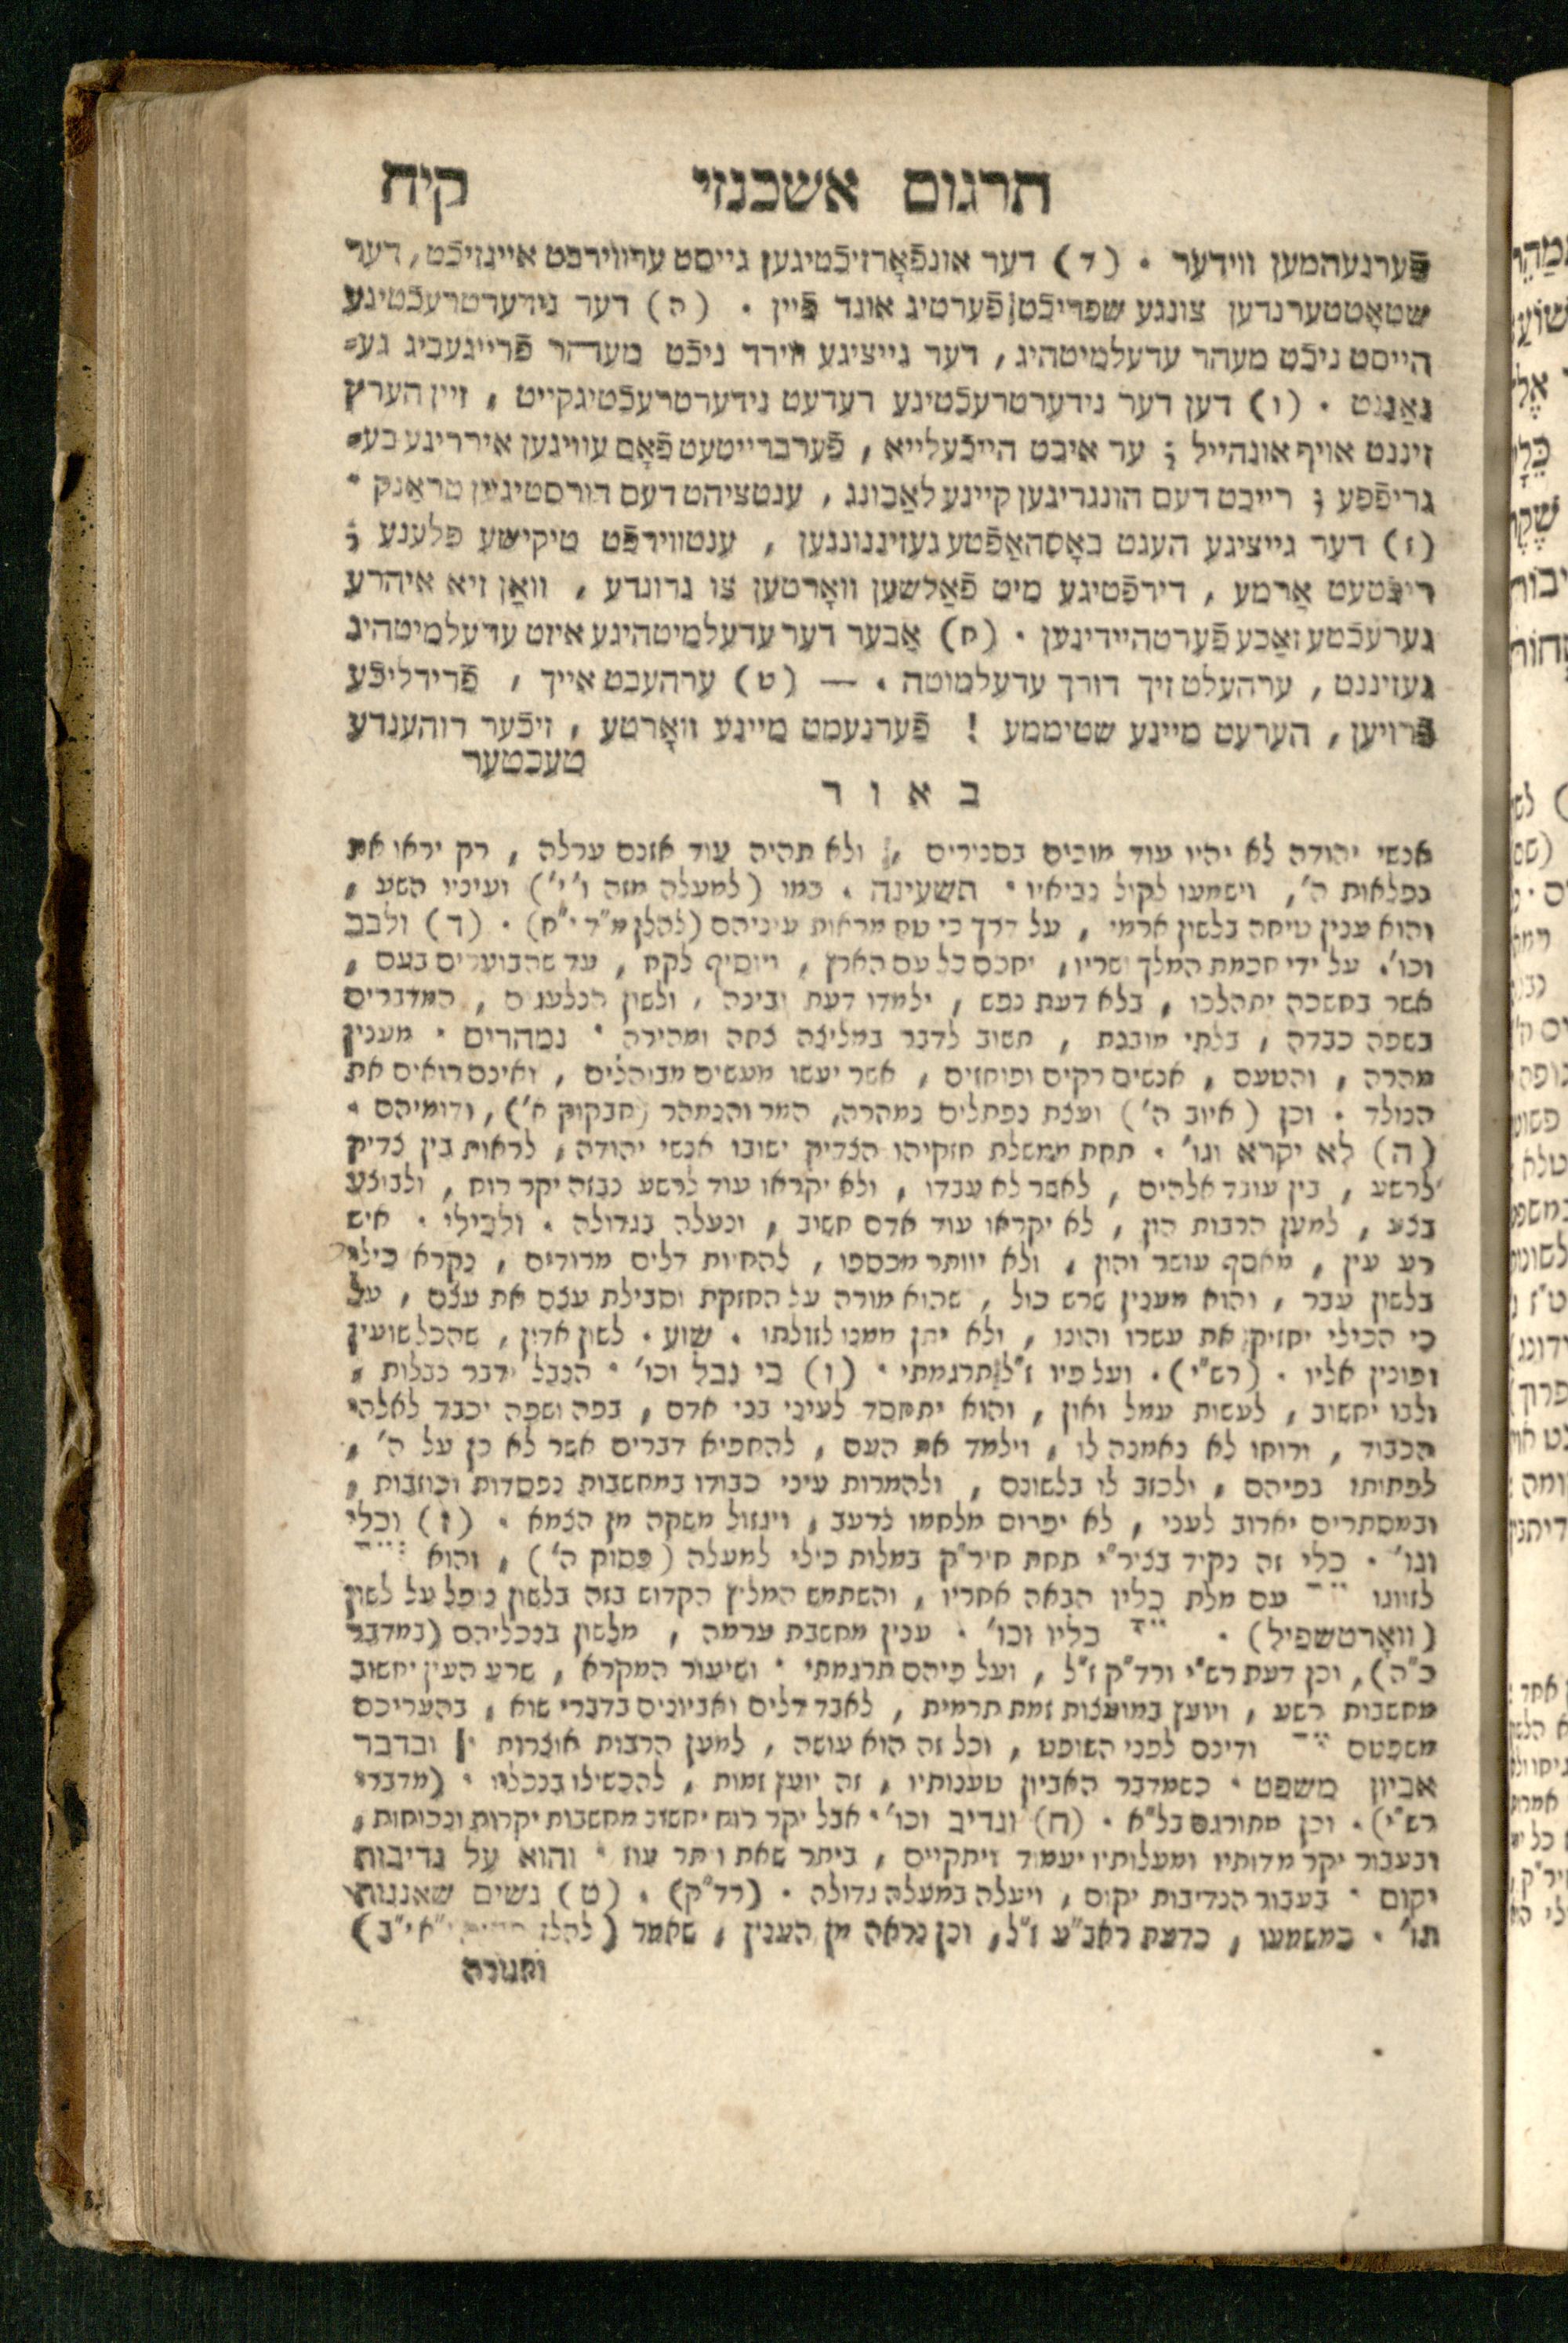 תרגום אשכנזי קיח
פֿערנעהמען ווידער . (ד) דער אונפֿאָרזיכֿטיגען גייסט ערווירבט איינזיכֿט, דער
שטאָטטערנדען צונגע שפריכֿט פֿערטיג אונד פֿיין . (ה) דער נידערטרעכֿטיגע
הייסט ניכֿט מעהר עדעלמיטהיג, דער גייציגע ווירד ניכֿט מעהר פֿרייגעביג גע=
נאַננט . (ו) דען דער נידערטרעכֿטיגע רעדעט נידערטרעכֿטיגקייט, זיין הערץ
זיננט אויף אונהייל ; ער איבט הייכֿעלייא, פֿערברייטעט פֿאָם עוויגען איררינע בע=
גריפֿפע ; רייבט דעם הונגריגען קיינע לאַבונג, ענטציהט דעם דורסטיגען טראַנק .
(ז) דער גייציגע העגט באָסהאַפֿטע געזיננונגען, ענטווירפֿט טיקישע פלענע ;
ריכֿטעט אַרמע, דירפֿטיגע מיט פֿאַלשען וואָרטען צו גרונדע, וואַן זיא איהרע
גערעכֿטע זאַכע פֿערטהיידיגען . (ח) אַבער דער עדעלמיטהיגע איזט עדעלמיטהיג
געזיננט, ערהעלט זיך דורך עדעלמוטה . — (ט) ערהעבט אייך, פֿרידליכֿע
פֿרויען, הערעט מיינע שטיממע ! פֿערנעמט מיינע וואָרטע, זיכֿער רוהענדע
טעכטער
באור
אנשי יהודה לא יהיו עוד מוכים בסנירים, ולא תהיה עוד אזנם ערלה, רק יראו את
נפלאות ה', וישמעו לקול נביאיו . תשעינה . כמו (למעלה מזה ו' י') ועיניו השע,
והוא ענין טיחה בלשון ארמי, על דרך כי טח מראות עיניהם (להלן מ"ד י"ח) . (ד) ולבב
וכו'. על ידי חכמת המלך ושריו, יחכם כל עם הארץ, ויוסיף לקח, עד שהבוערים בעם,
אשר בחשכה יתהלכו, בלא דעת נפש, ילמדו דעת ובינה, ולשון הנלעגים, המדברים
בשפה כבדה, בלתי מובנת, תשוב לדבר במליצה צחה ומהירה . נמהרים . מענין
מהרה, והטעם, אנשים רקים ופוחזים, אשר יעשו מעשים מבוהלים, ואינם רואים את
הנולד . וכן (איוב ה') ועצת נפתלים נמהרה, המר והנמהר (חבקוק א'), ודומיהם .
(ה) לא יקרא וגו' . תחת ממשלת חזקיהו הצדיק ישובו אנשי יהודה, לראות בין צדיק
לרשע, בין עובד אלהים, לאשר לא עבדו, ולא יקראו עוד לרשע כבזה יקר רוח, ולבוצע
בצע, למען הרבות הון, לא יקראו עוד אדם חשוב, ונעלה בגדולה . ולכילי . איש
רע עין, מאסף עושר והון, ולא יוותר מכספו, להחיות דלים מרודים, נקרא כילי
בלשון עבר, והוא מענין שרש כול, שהוא מורה על החזקת וסבילת עצם את עצם, על
כי הכילי יחזיק את עשרו והונו, ולא יתן ממנו לזולתו . שוע . לשון אדון, שהכל שועין
ופונין אליו . (רש"י). ועל פיו ז"ל תרגמתי . (ו) כי נבל וכו' . הנבל ידבר נבלות,
ולבו יחשוב, לעשות עמל ואון, והוא יתחסד לעיני בני אדם, בפה ושפה יכבד לאלהי
הכבוד, ורוחו לא נאמנה לו, וילמד את העם, להחפיא דברים אשר לא כן על ה',
לפתותו בפיהם, ולכזב לו בלשונם, ולהמרות עיני כבודו במחשבות נפסדות וכוזבות,
ובמסתרים יארוב לעני, לא יפרוס מלחמו לרעב, ויגזול משקה מן הצמא . (ז) וכלי
וגו' . כלי זה נקיד בציר"י תחת חיר"ק במלות כילי למעלה (פסוק ה'), והוא
לזווגו עם מלת כליו הבאה אחריו, והשתמש המליץ הקדוש בזה בלשון נופל על לשון
(וואָרטשפיל) . כליו וכו' . ענין מחשבת ערמה, מלשון בנכליהם (במדבר
כ"ה), וכן דעת רש"י ורד"ק ז"ל, ועל פיהם תרגמתי . ושיעור המקרא, שרע העין יחשוב
מחשבות רשע, ויועץ במועצות זמת תרמית, לאבד דלים ואביונים בדברי שוא, בהעריכם
משפטם ודינם לפני השופט, וכל זה הוא עושה, למען הרבות אוצרות ובדבר
אביון משפט . כשמדבר האביון טענותיו, זה יועץ זמות, להכשילו בנכליו . (מדברי
רש"י). וכן מתורגם בל"א . (ח) ונדיב וכו' . אבל יקר רוח יחשוב מחשבות יקרות ונכוחות,
ובעבור יקר מדותיו ומעלותיו יעמוד ויתקיים, ביתר שאת ויתר עוז . והוא על נדיבות
יקום . בעבור הנדיבות יקום, ויעלה במעלה גדולה . (רד"ק) . (ט) נשים שאננות
וגו' . כמשמעו, כדעת ראב"ע ז"ל, וכן נראה מן הענין, שאמר (להלן
וחגורה